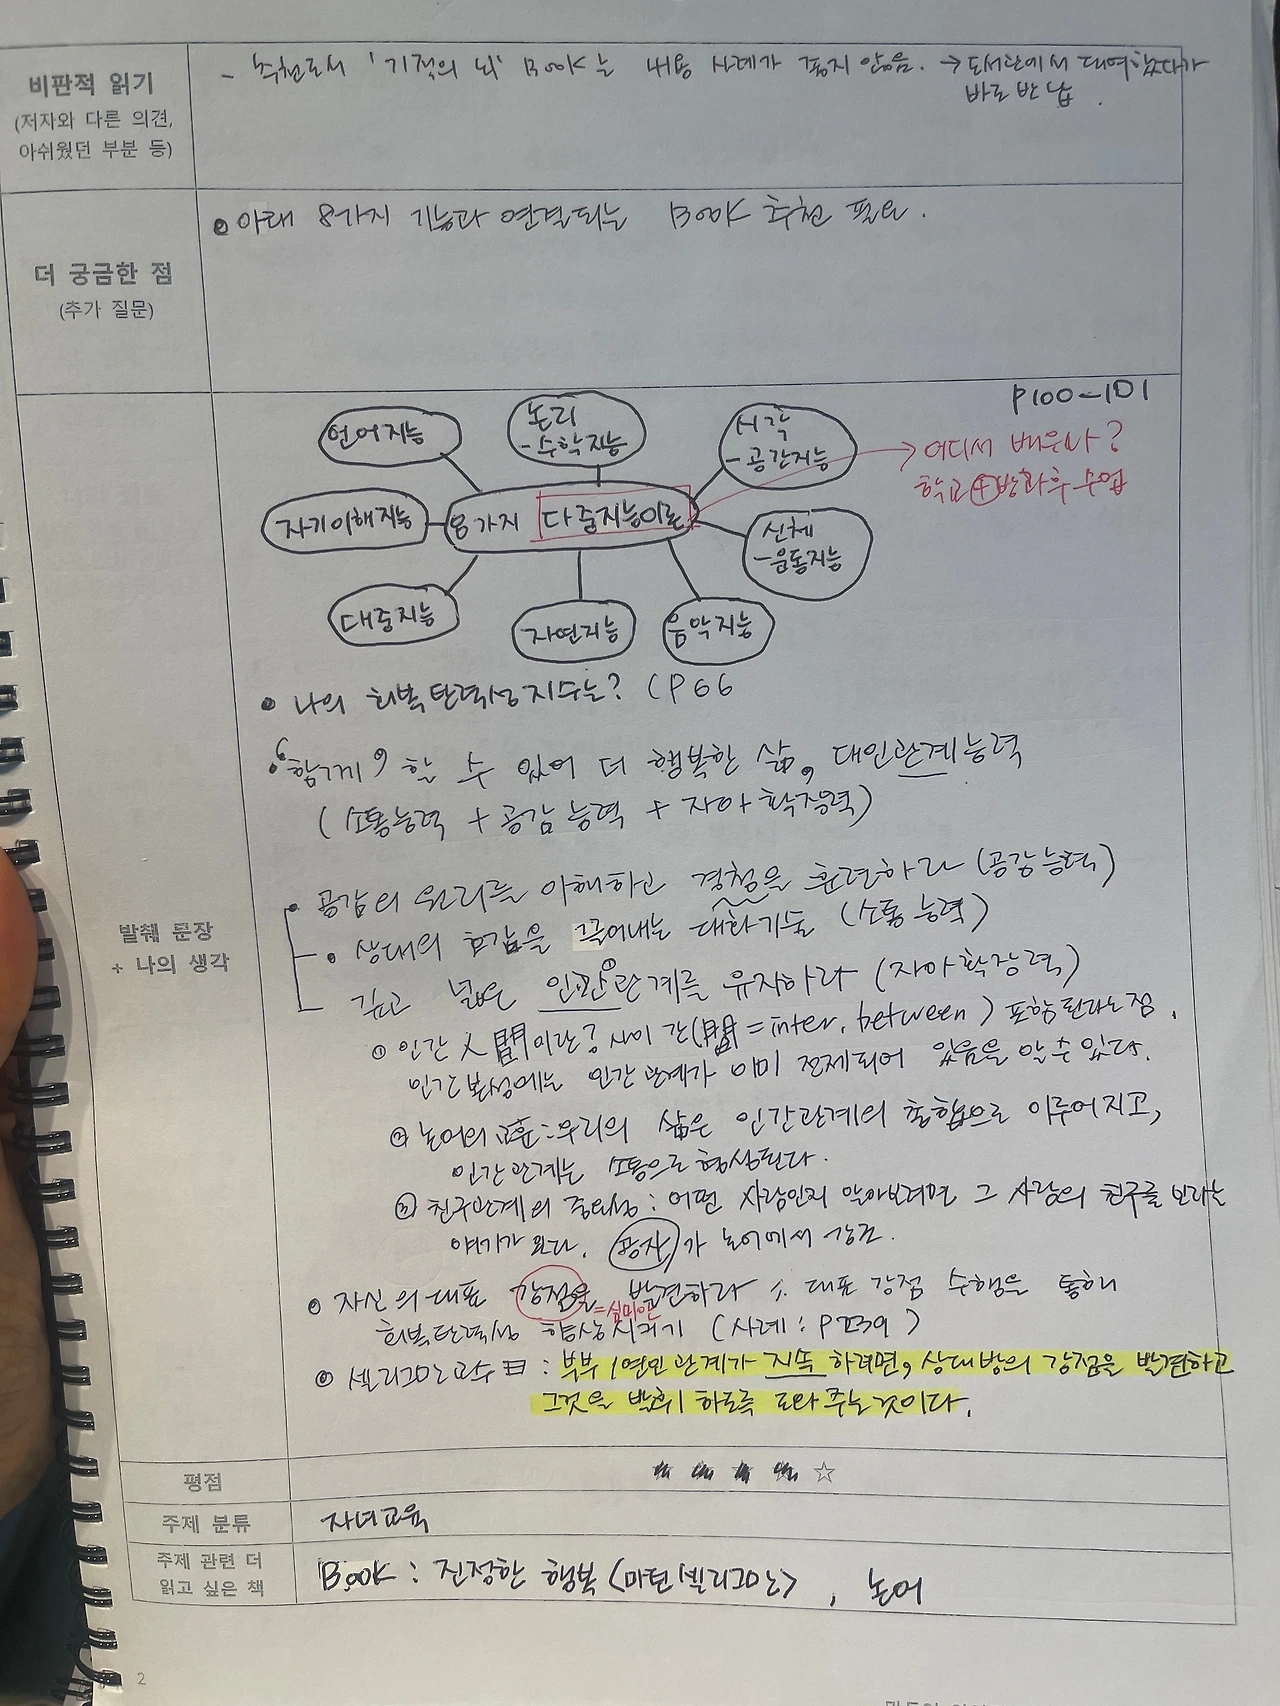 비판적 읽기
(저자와 다른 의견,
아쉬웠던 부분 등)
- 추천도서 '기적의 뇌' BOOK는 내용 사례가 좋지 않음. → 도서관에서 대여했다가
바로 반납.
더 궁금한 점
(추가 질문)
• 아래 8가지 기능과 연결되는 BOOK 추천 필요.
P100-101
언어지능
논리
-수학지능
시각
-공간지능
→ 어디서 배우나?
학교 + 방과후수업
자기이해지능
8가지 다중지능이론
신체
-운동지능
대중지능
자연지능
음악지능
• 나의 회복탄력성지수는? (P66
• '함께' 할 수 있어 더 행복한 삶, 대인관계능력
(소통능력 + 공감능력 + 자아확장력)
발췌 문장
+ 나의 생각
• 공감의 원리를 이해하고 경청을 훈련하라 (공감능력)
• 상대의 호감을 끌어내는 대화기술 (소통능력)
깊고 넓은 인간관계를 유지하라 (자아확장력)
① 인간 人間이란? 사이 간(間 = inter, between) 포함된다는점.
인간본성에는 인간관계가 이미 전제되어 있음을 알수있다.
② 논어의 교훈: 우리의 삶은 인간관계의 총합으로 이루어지고,
인간관계는 소통으로 형성된다.
③ 친구관계의 중요성: 어떤 사람인지 알아보려면 그 사람의 친구를 보라는
얘기가 있다. 공자가 논어에서 강조.
• 자신의 대표 강점을 발견하라 ∴ 대표 강점 수행을 통해
=심미안
회복탄력성 향상시키기 (사례: P239)
• 셀리그만 교수 曰: 부부/연인관계가 지속하려면, 상대방의 강점을 발견하고
그것을 발휘하도록 도와주는것이다.
평점
★ ★ ★ ★ ☆
주제 분류
자녀교육
주제 관련 더
읽고 싶은 책
BOOK: 진정한 행복 <마틴셀리그만>, 논어
2